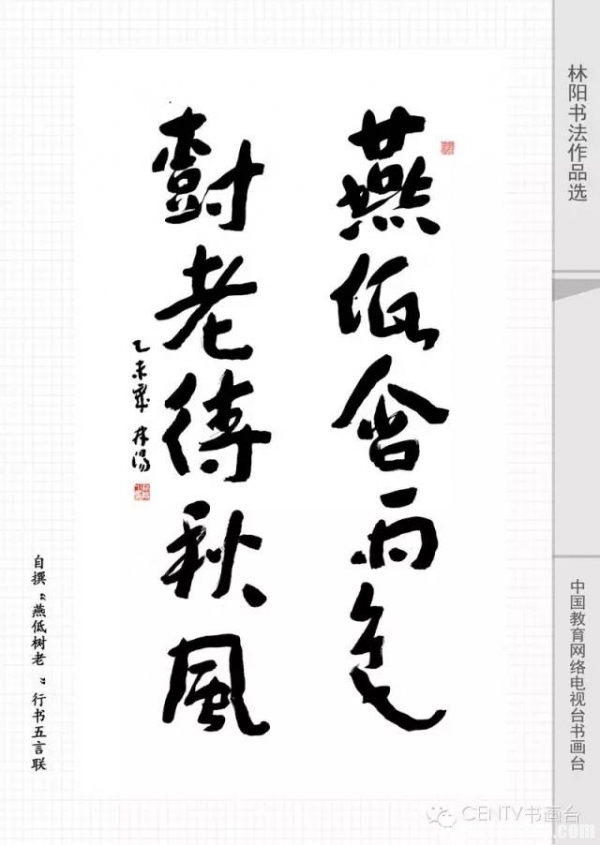 林阳书法作品选
燕低含雨色
樹老待秋風
乙未歲 林陽
自撰“燕低树老”行书五言联
中国教育网络电视台书画台
CENTV书画台
.com